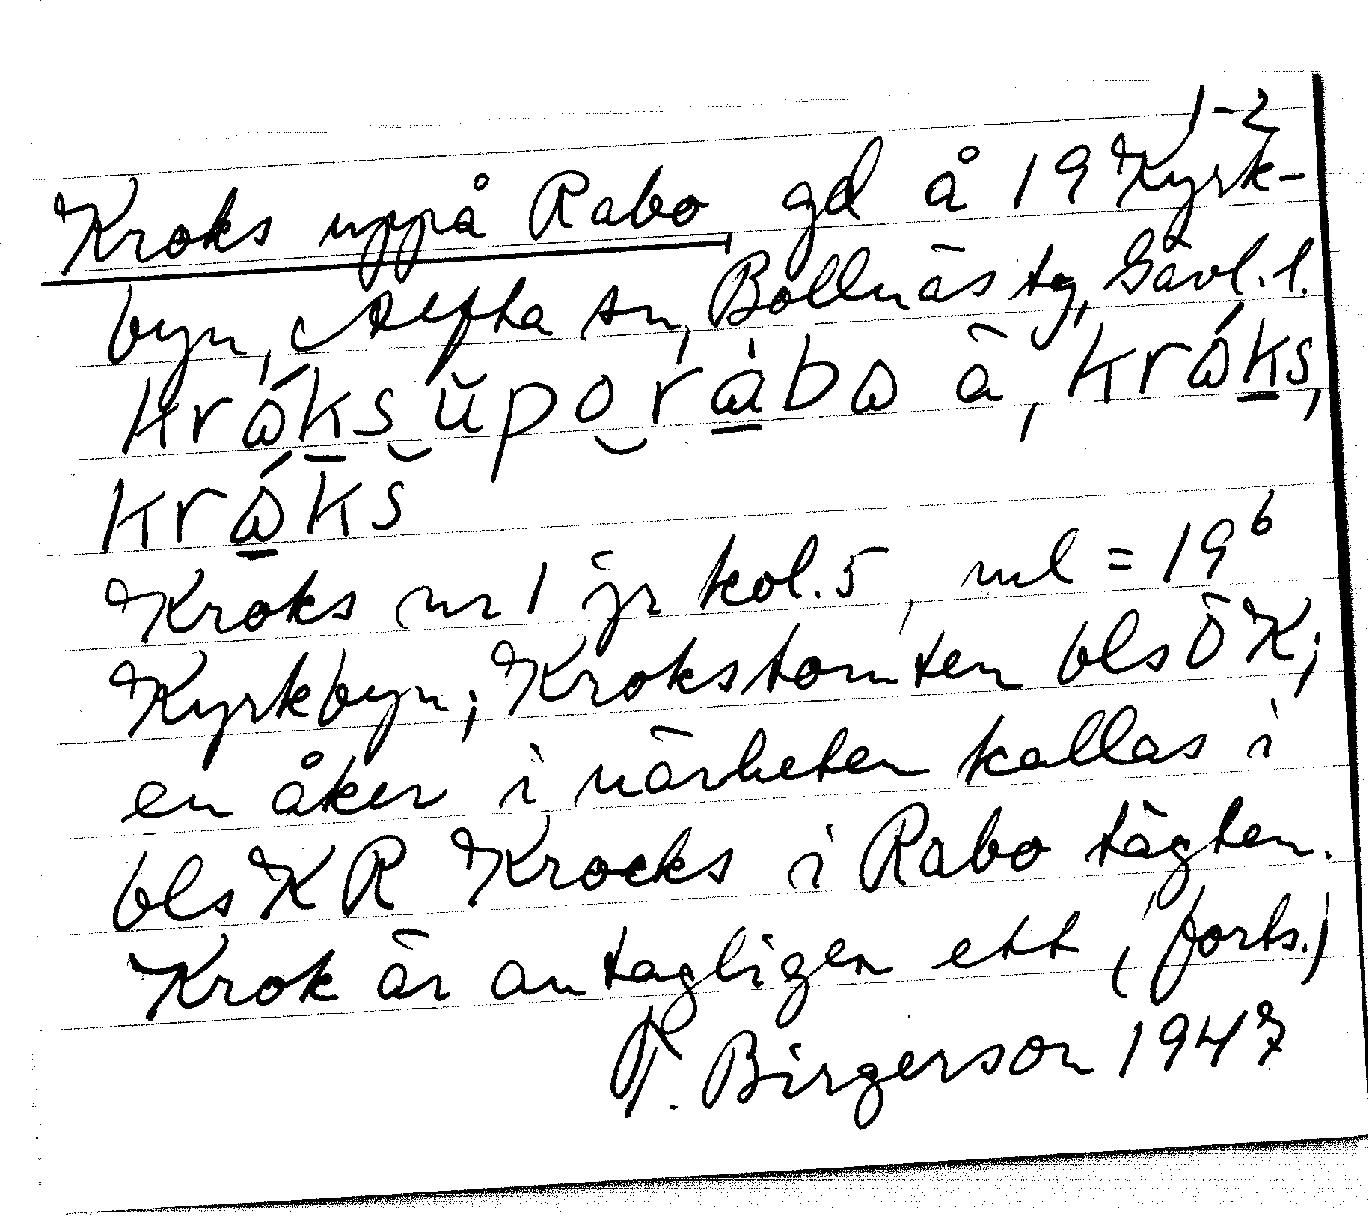 1-2
Kroks uppå Rabo gd å 19 Kyrk-
byn, Alfta sn, Bollnäs tg, Gävl. l.
krὼ́ks ŭporàbω ä, krώks,
krώkš
Kroks nr 1 jr kol. 5, ml = 19⁶
Kyrkbyn; Krokstomten bls ÖK;
en åker i närheten kallas i
bls KR Krocks i Rabo tägten.
Krok är antagligen ett (forts.)
P. Birgerson 1947